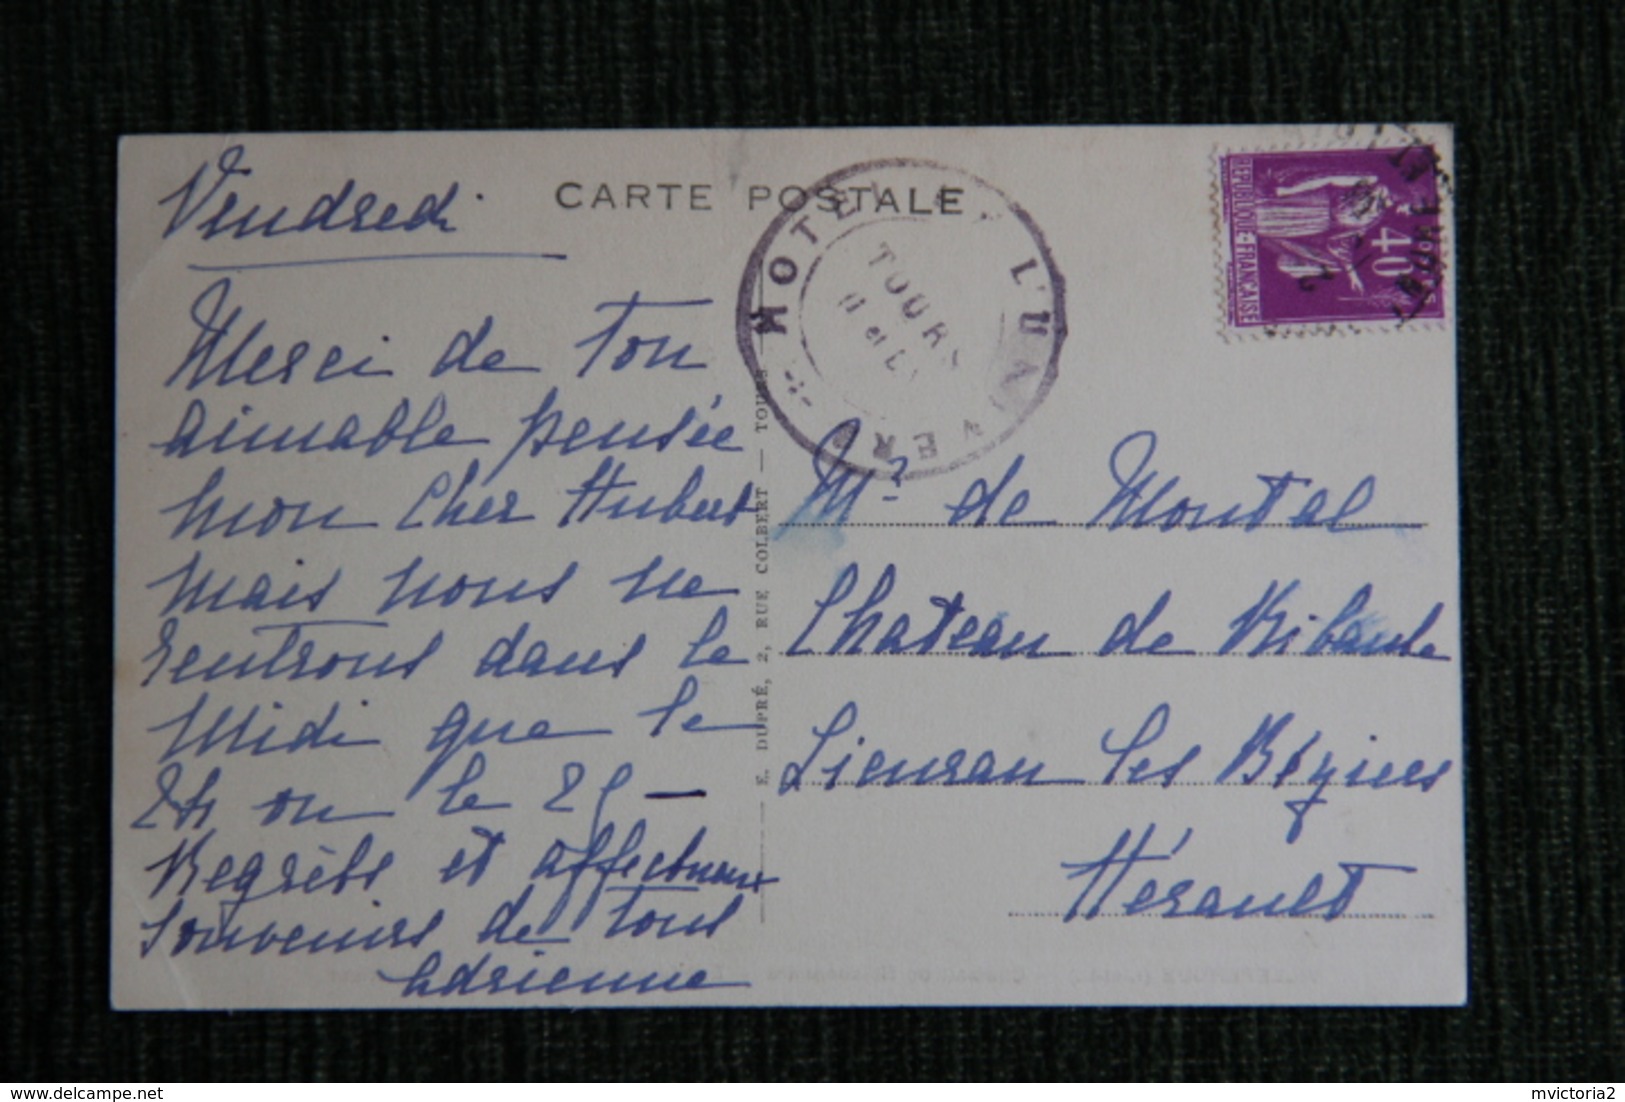 CARTE POSTALE
Vendredi
Merci de Ton
aimable pensée
mon Cher Hubert
mais nous ne
rentrons dans le
Midi que le
24 ou le 25 —
Regrets et affectueux
souvenirs de tous
Adrienne
HOTEL DE L'UNIVERS
TOURS
E. DUPRÉ, 2, RUE COLBERT — TOURS
REPUBLIQUE FRANÇAISE
POSTES
40
Mr de Montal
Chateau de Ribaute
Lieuran les Béziers
Hérault
mvictoria2